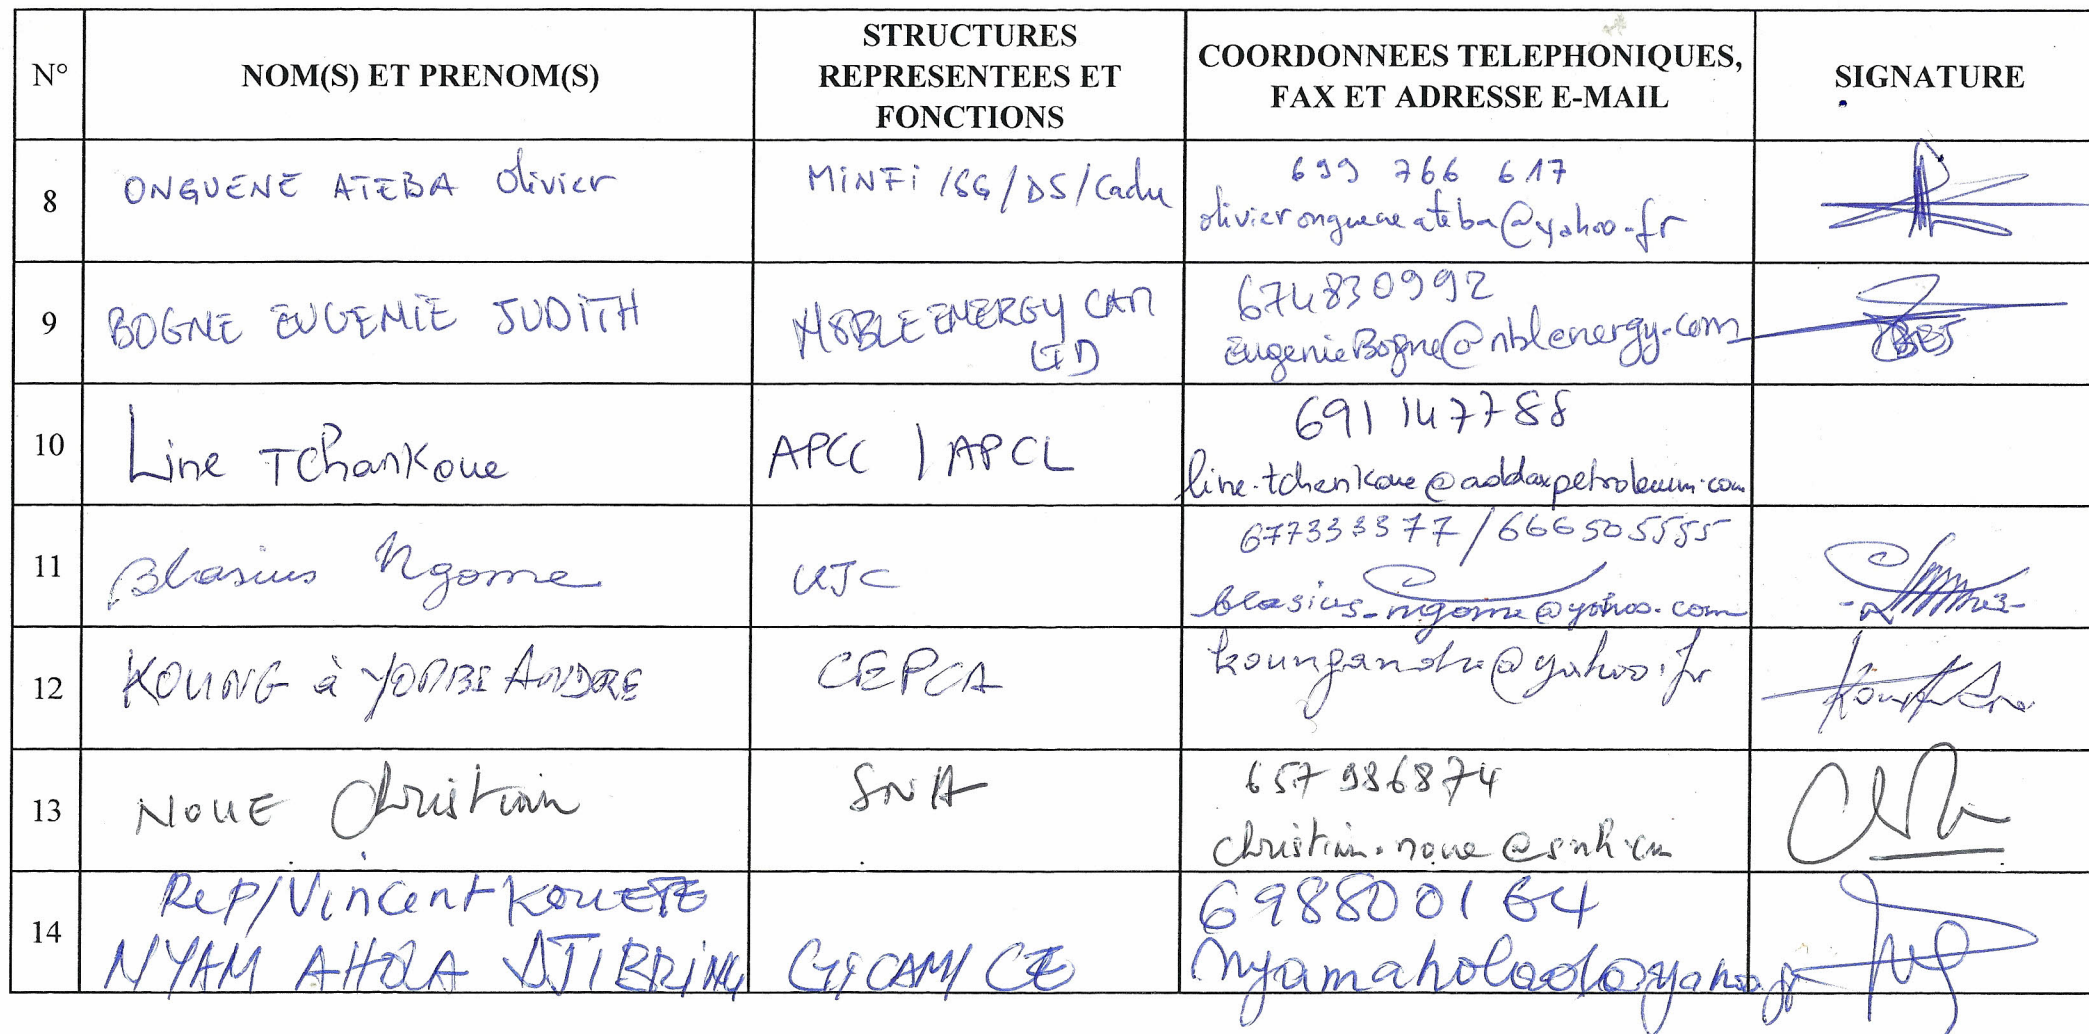 N°
NOM(S) ET PRENOM(S)
STRUCTURES
REPRESENTEES ET
FONCTIONS
COORDONNEES TELEPHONIQUES,
FAX ET ADRESSE E-MAIL
SIGNATURE
8
ONGUENE ATEBA Olivier
MINFI /SG/DS/Cadre
699 766 617
olivieronguene ateba@yahoo.fr
9
BOGNE EUGENIE JUDITH
NOBLE ENERGY CAM
LTD
674830992
EugenieBogne@nblenergy.com
10
Line TChankoue
APCC / APCL
691 147788
line.tchankoue@addaxpetroleum.com
11
Blasius Ngome
UJC
677333377/666505555
blasius_ngome@yahoo.com
12
KOUNG à ANDRE
CEPCA
koungandre@yahoo.fr
13
NOUE Christian
SNH
657 986874
christian.noue@snh.cm
14
Rep/Vincent KOUETE
NYAM AHOLA DJIBRING
GICAM/ CE
698800164
nyamaholado@yahoo.fr